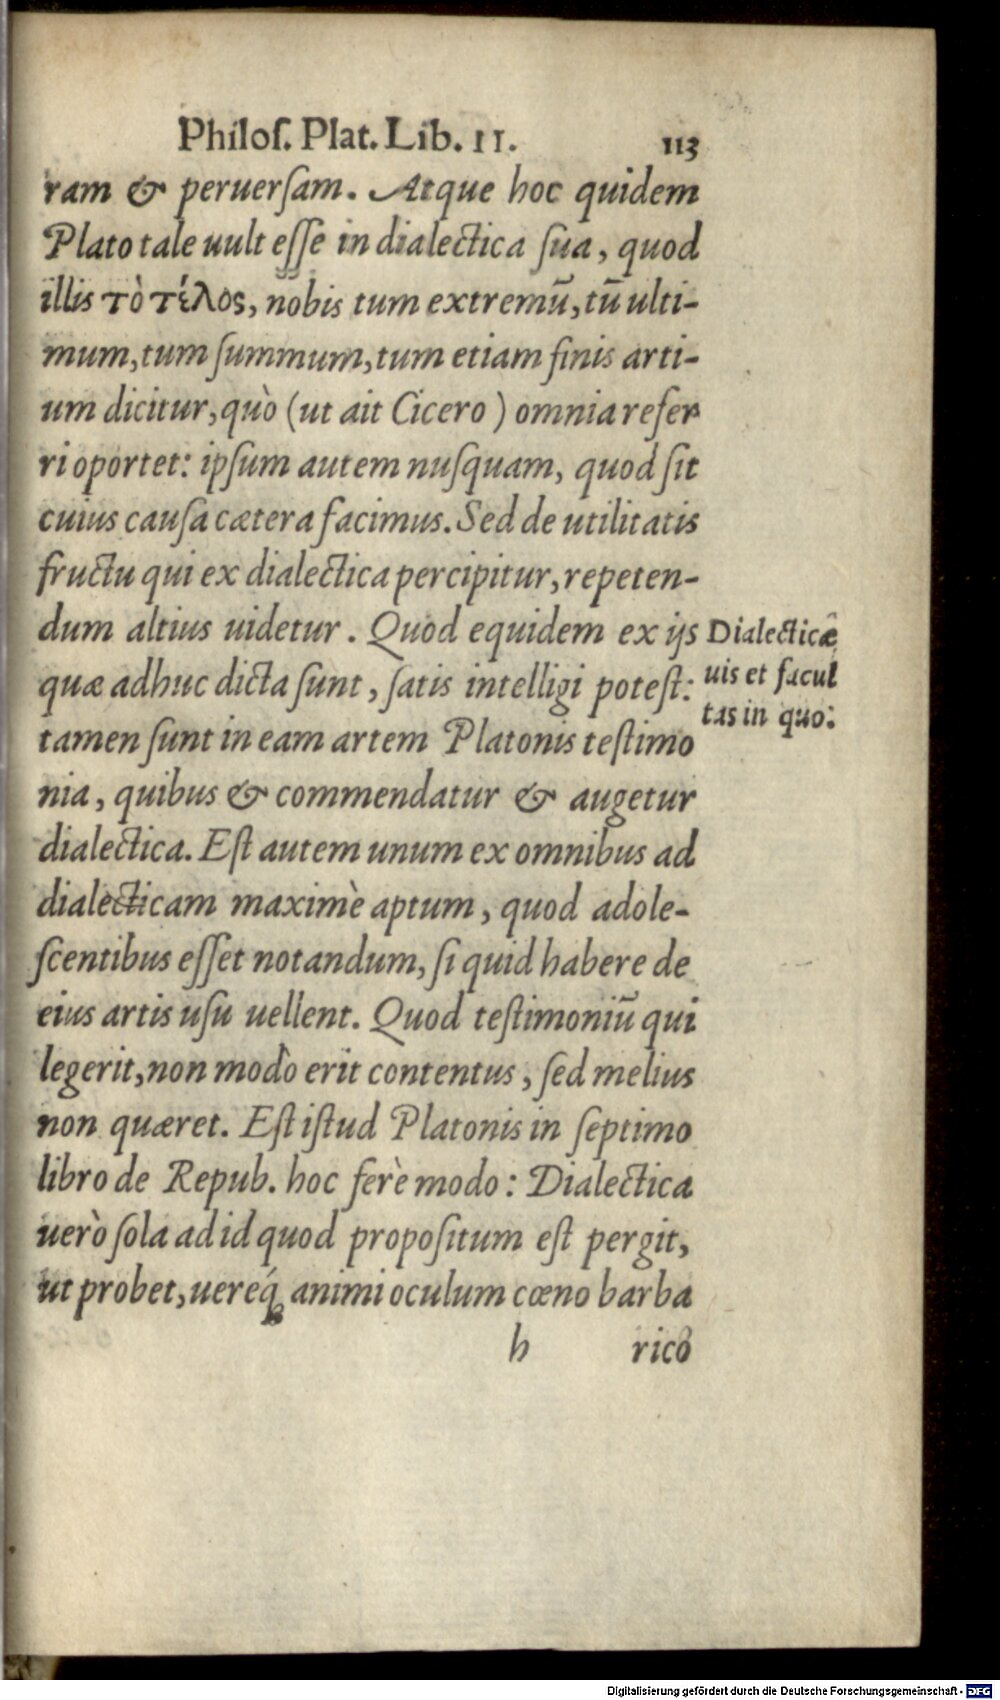 Philoſ. Plat. Lib. II. 113
ram & peruerſam. Atque hoc quidem
Plato tale uult eſſe in dialectica ſua, quod
illis τὸ τέλος, nobis tum extremū, tū ulti-
mum, tum ſummum, tum etiam finis arti-
um dicitur, quò (ut ait Cicero) omnia refer
ri oportet: ipſum autem nuſquam, quod ſit
cuius cauſa cætera facimus. Sed de utilitatis
fructu qui ex dialectica percipitur, repeten-
dum altius uidetur. Quod equidem ex ijs
quæ adhuc dicta ſunt, ſatis intelligi poteſt:
tamen ſunt in eam artem Platonis teſtimo
nia, quibus & commendatur & augetur
dialectica. Eſt autem unum ex omnibus ad
dialecticam maximè aptum, quod adole-
ſcentibus eſſet notandum, ſi quid habere de
eius artis uſu uellent. Quod teſtimoniū qui
legerit, non modò erit contentus, ſed melius
non quæret. Eſt iſtud Platonis in ſeptimo
libro de Repub. hoc ferè modo: Dialectica
uerò ſola ad id quod propoſitum eſt pergit,
ut probet, uereq́; animi oculum cœno barba
h rico
Dialecticæ
uis et facul
tas in quo.
Digitalisierung gefördert durch die Deutsche Forschungsgemeinschaft - DFG